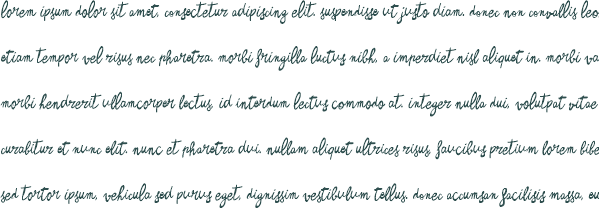 lorem ipsum dolor sit amet, consectetur adipiscing elit. suspendisse ut justo diam. donec non convallis leo
etiam tempor vel risus nec pharetra. morbi fringilla luctus nibh, a imperdiet nisl aliquet in. morbi va
morbi hendrerit ullamcorper lectus, id interdum lectus commodo at. integer nulla dui, volutpat vitae
curabitur et nunc elit. nunc et pharetra dui. nullam aliquam ultrices risus, faucibus pretium lorem bibe
sed tortor ipsum, vehicula sed purus eget, dignissim vestibulum tellus. donec accumsan facilisis massa, eu